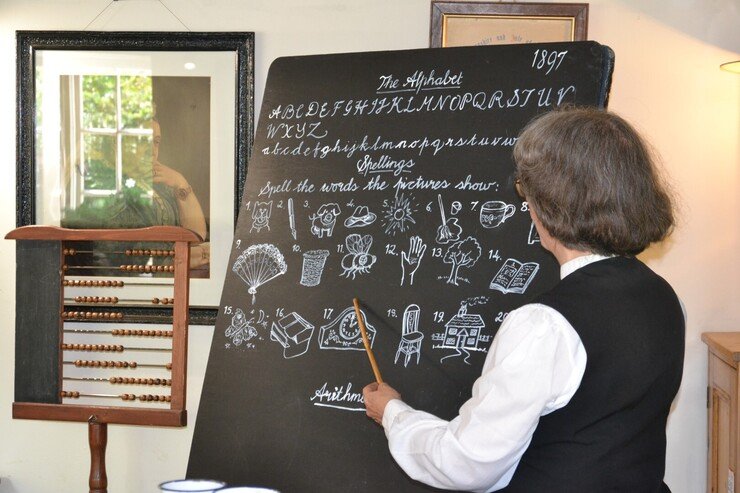 1897
The Alphabet
ABCDEFGHIJKLMNOPQRSTUV
WXYZ
abcdefghijklmnopqrstuvw
Spellings
Spell the words the pictures show:
1. 2. 3. 4. 5. 6. 7.
9. 10. 11. 12. 13. 14.
15. 16. 17. 18. 19. 20
Arithm